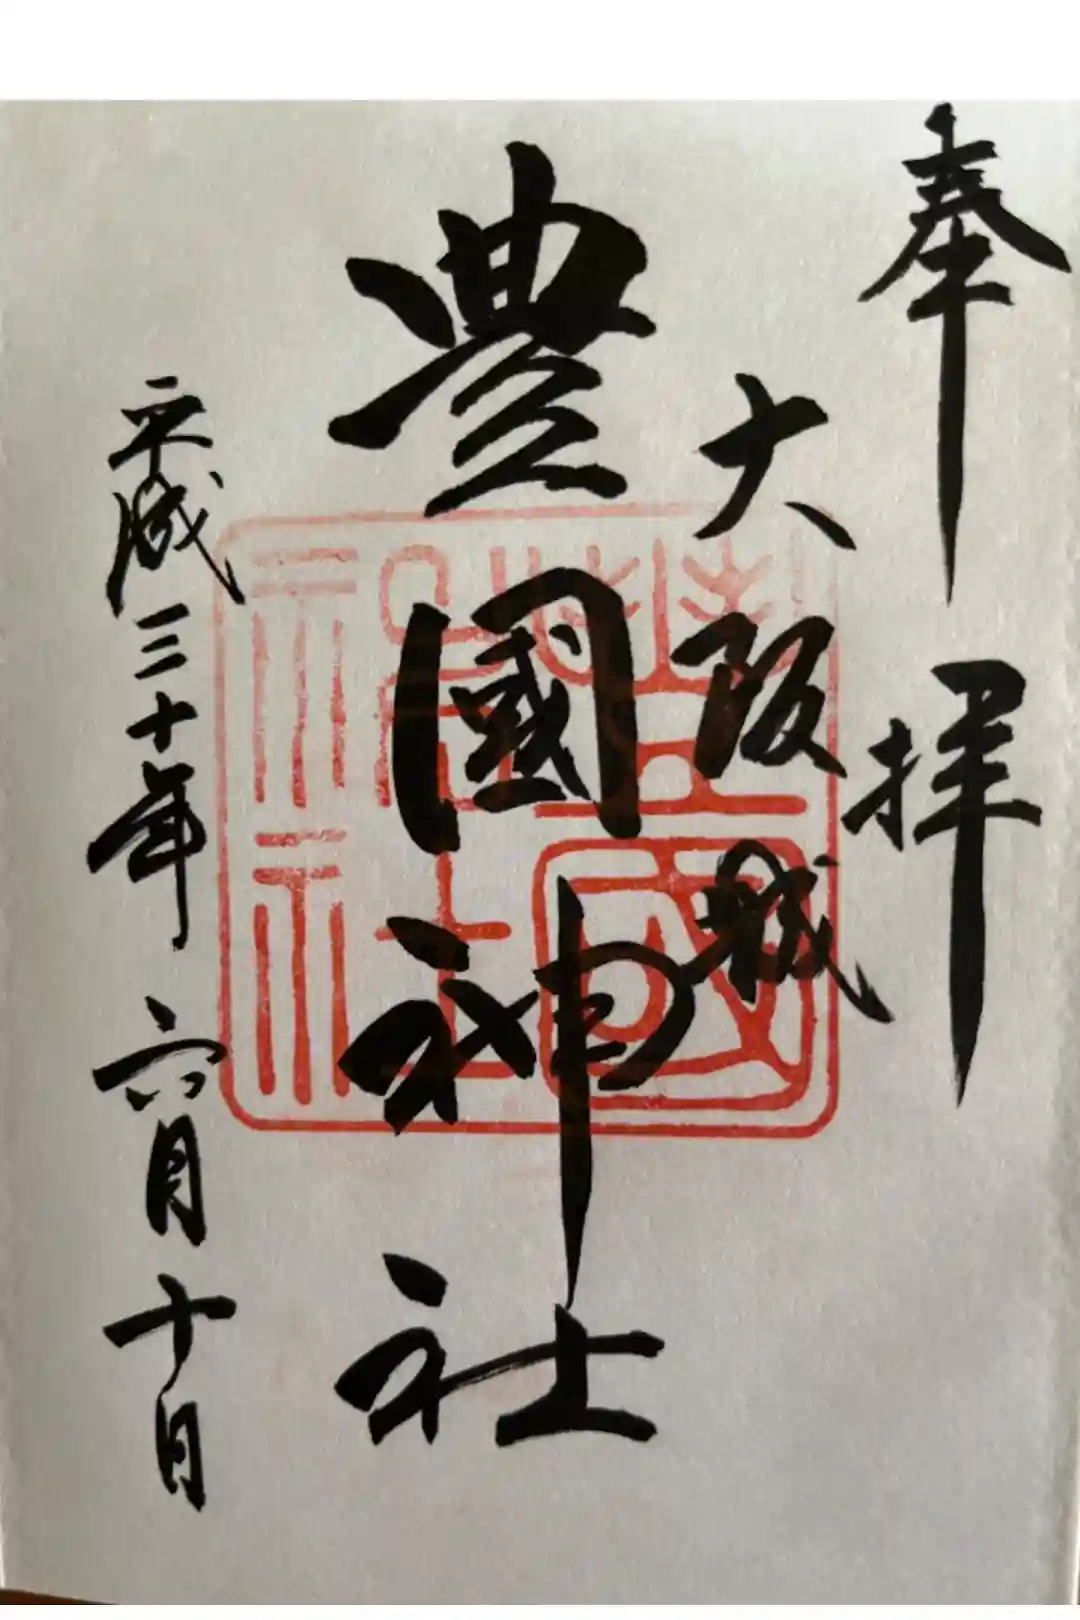 奉拝
大阪城
豊國神社
平成三十年六月十日
豊國神社